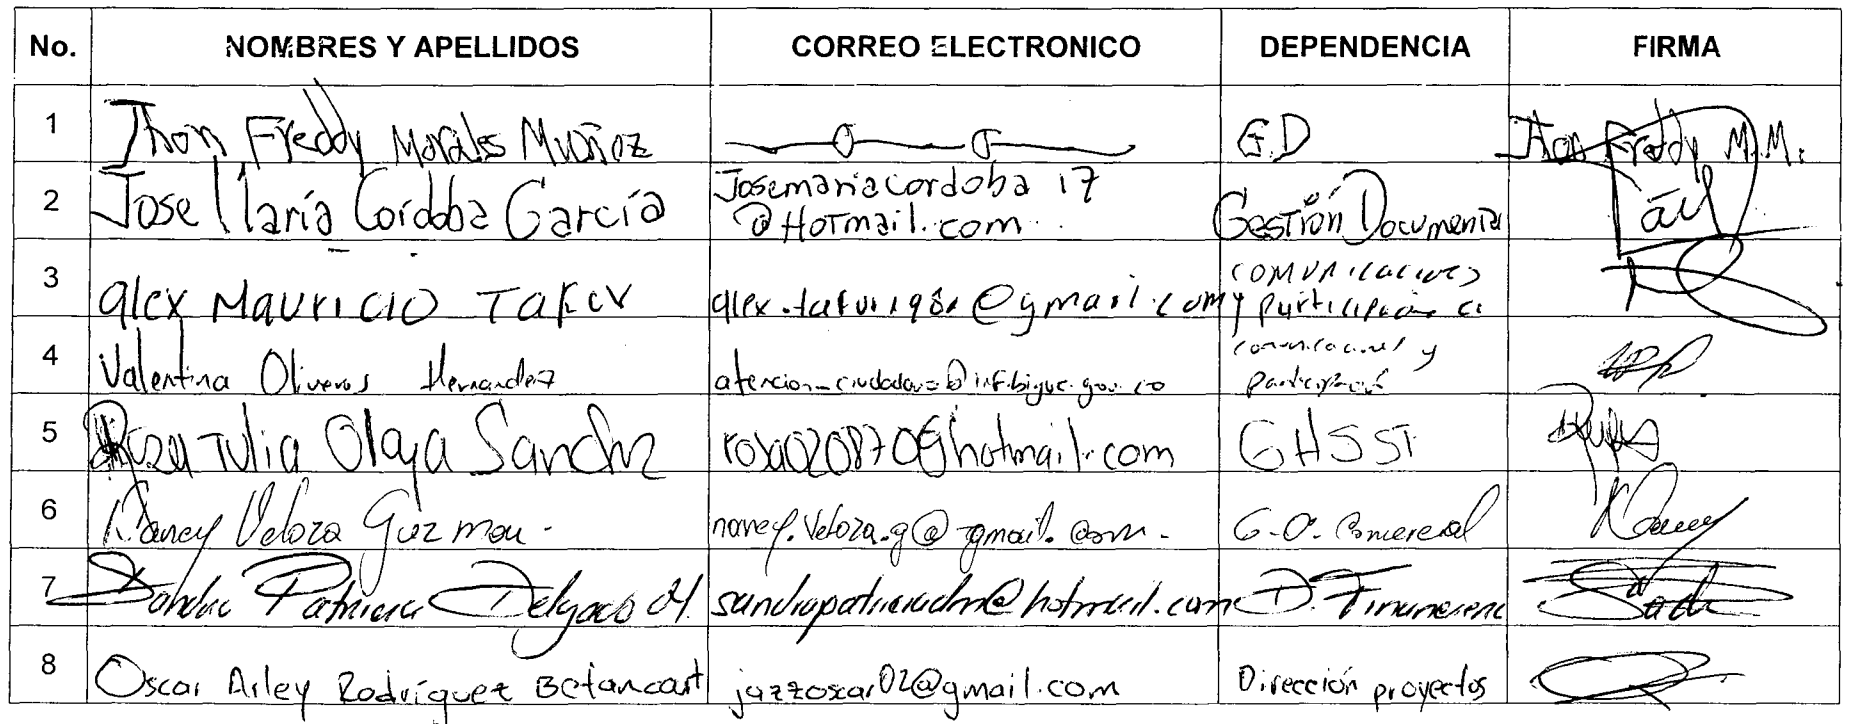 No. NOMBRES Y APELLIDOS CORREO ELECTRONICO DEPENDENCIA FIRMA
1 Jhon Freddy Morales Muñoz G.D Jhon Freddy M.M.
2 Jose María Cordoba García Josemariacordoba 17
@Hotmail.com Gestión Documental
3 alex Mauricio Tafur @gmail.com comunicaciones
y participación
4 Valentina Oliveros Hernandez comunicaciones y
participación
5 Roza Julia Olaya Sanchz rosa020870@hotmail.com GHSST
6 Nancy Veloza Guzman. nancy.veloza.g@gmail.com. G.O. Comercial Nancy
7 Sandra Patricia Delgado M. sandrapatriciadm@hotmail.com D. Financiera
8 Oscar Arley Rodríguez Betancourt jazzoscar02@gmail.com Dirección proyectos